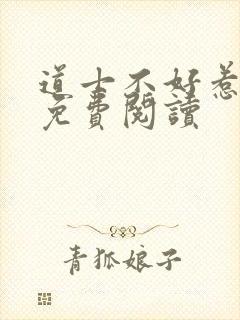 道士不好惹
免費閱讀
青狐娘子